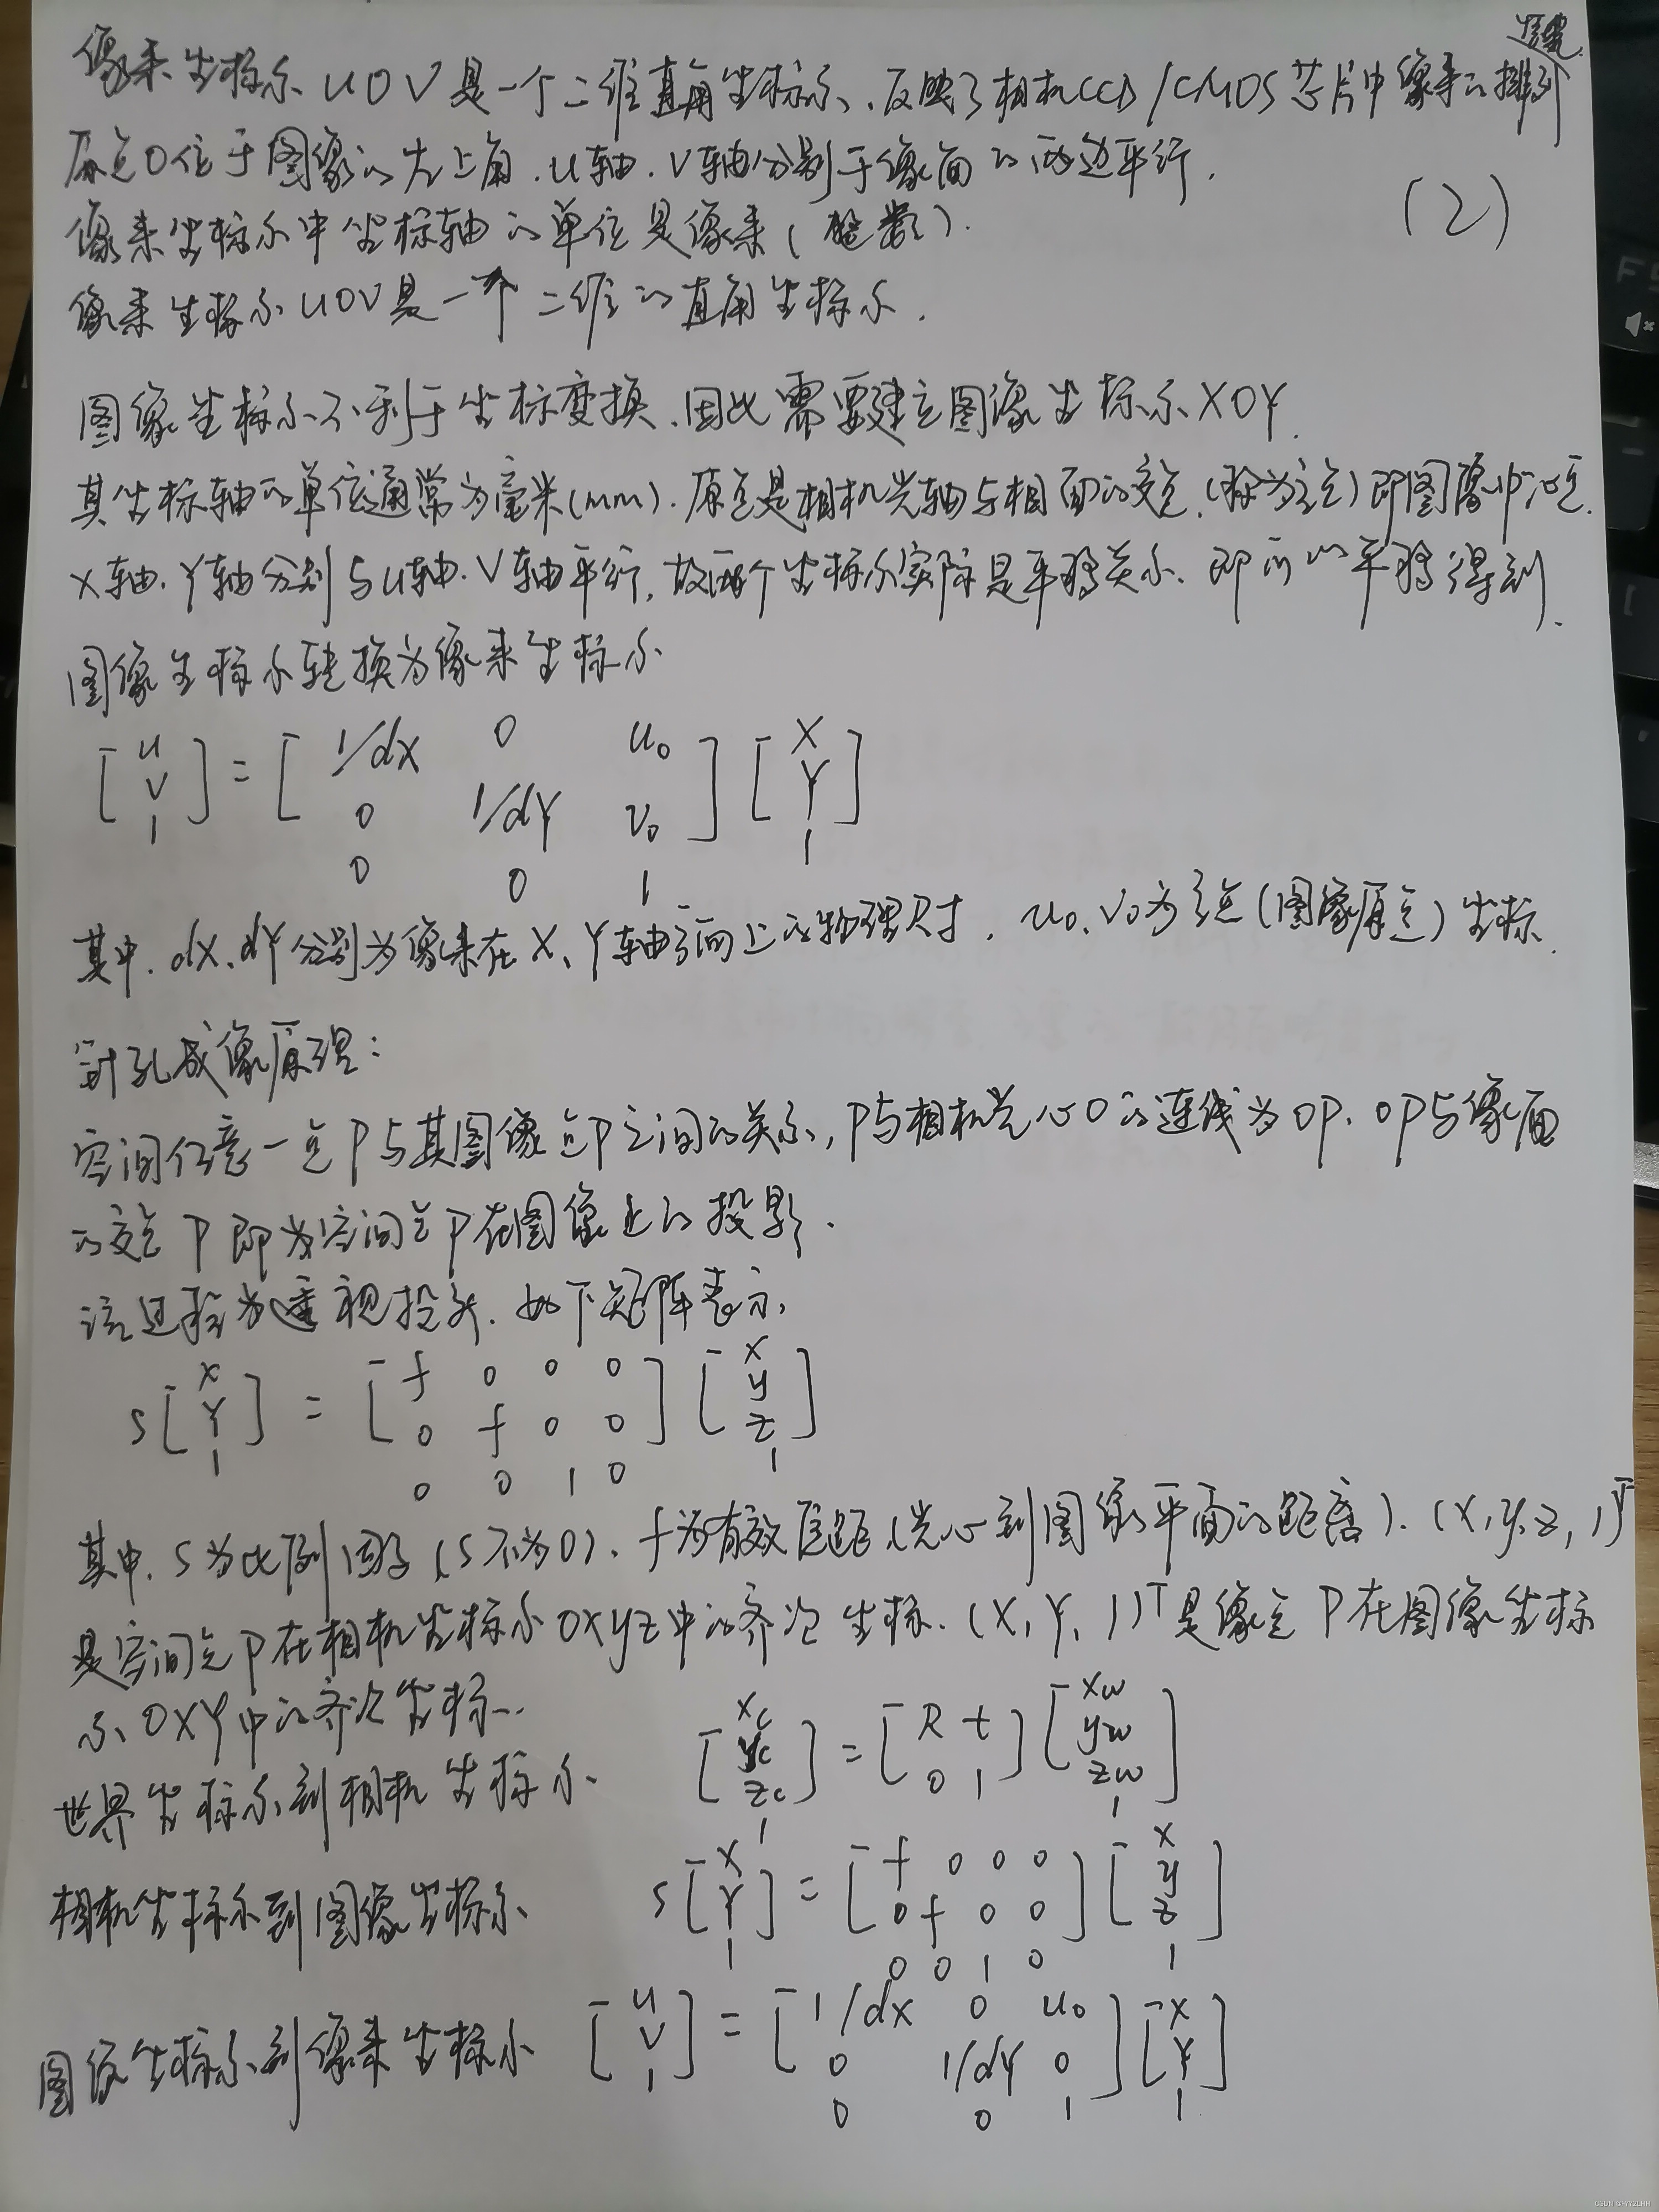 像素坐标系UOV是一个二维直角坐标系,反映了相机CCD/CMOS芯片中像素的排列
原点O位于图像的左上角,U轴、V轴分别于像面的两边平行.
像素坐标系中坐标轴的单位是像素(整数).
(2)
像素坐标系UOV是一个二维的直角坐标系.
图像坐标系不利于坐标变换,因此需要建立图像坐标系XOY.
其坐标轴的单位通常为毫米(mm).原点是相机光轴与相面的交点,(称为主点)即图像中心点.
X轴、Y轴分别与U轴、V轴平行,故两个坐标系实际是平移关系,即可以平移得到.
图像坐标系转换为像素坐标系
[u v 1] = [1/dX 0 u₀ 0 1/dY v₀ 0 0 1] [X Y 1]
其中,dX、dY分别为像素在X、Y轴方向上的物理尺寸,u₀、v₀为主点(图像原点)坐标.
针孔成像原理:
空间任意一点P与其图像点P之间的关系,P与相机光心O的连线为OP,OP与像面
的交点P即为空间点P在图像上的投影.
该过程为透视投影,如下矩阵表示,
s[X Y 1] = [f 0 0 0 0 f 0 0 0 0 1 0] [x y z 1]
其中,s为比例因子(s不为0),f为有效焦距(光心到图像平面的距离).(x,y,z,1)ᵀ
是空间点P在相机坐标系OXYZ中的齐次坐标.(X,Y,1)ᵀ是像点P在图像坐标
系OXY中的齐次坐标.
世界坐标系到相机坐标系 [xc yc zc 1] = [R t 0 1] [xw yw zw 1]
相机坐标系到图像坐标系 s[X Y 1] = [f 0 0 0 0 f 0 0 0 0 1 0] [x y z 1]
图像坐标系到像素坐标系 [u v 1] = [1/dX 0 u₀ 0 1/dY 0 0 0 1] [X Y 1]
CSDN @YY2LHH